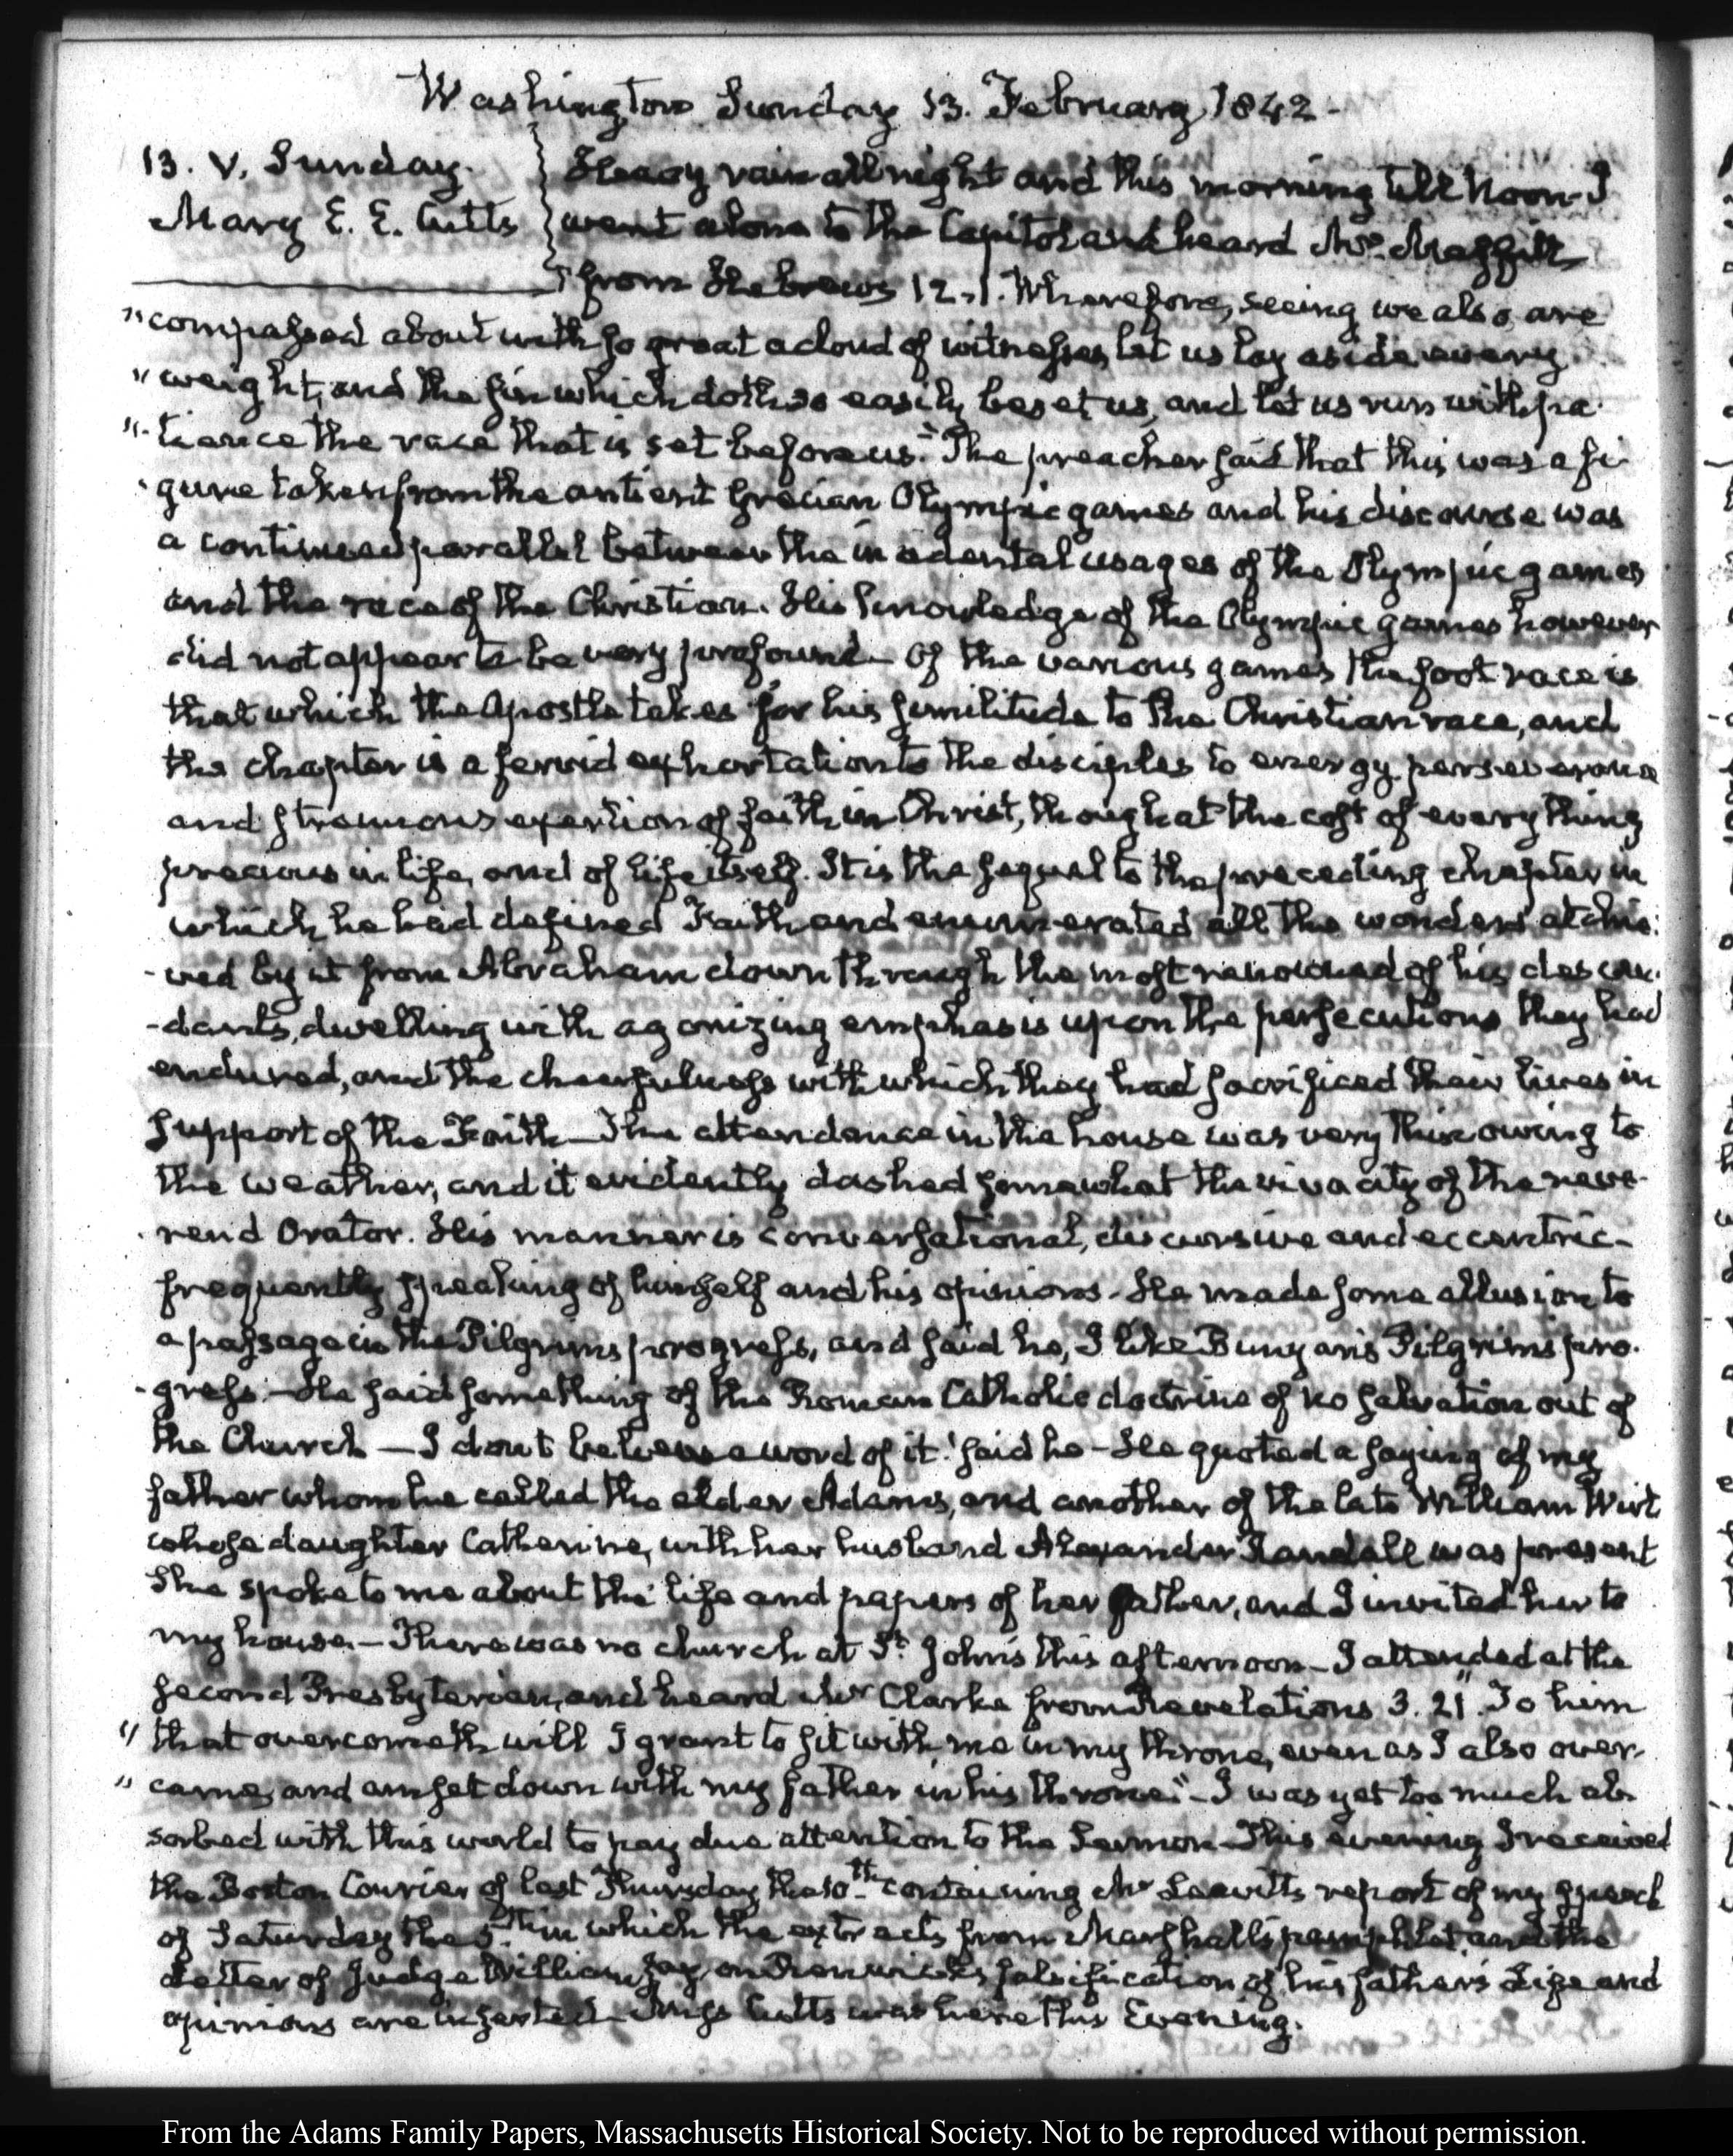 Washington Sunday 13. February 1842-
13. V. Sunday.
Mary E. E. Cutts
Heavy rain all night and this morning till Noon- I
went alone to the Capitol and heard Mr. Maffitt
from Hebrews 12.1. Wherefore, seeing we also are
"compassed about with so great a cloud of witnesses, let us lay aside every
"weight, and the sin which doth so easily beset us, and let us run with pa-
"-tience the race that is set before us." The preacher said that this was a fi-
-gure taken from the antient Grecian Olympic games and his discourse was
a continued parallel between the incidental usages of the Olympic games
and the race of the Christian. His knowledge of the Olympic games however
did not appear to be very profound- Of the various games the foot race is
that which the Apostle takes for his similitude to the Christian race, and
the chapter is a fervid exhortation to the disciples to energy perseverance
and strenuous exertion of faith in Christ, though at the cost of every thing
precious in life, and of life itself. It is the sequel to the preceding chapter in
which he had defined Faith and enumerated all the wonders atchie-
-ved by it from Abraham down through the most renowned of his descen-
-dants, dwelling with agonizing emphasis upon the persecutions they had
endured, and the chearfulness with which they had sacrificed their lives in
support of the Faith- The attendance in the house was very thin owing to
the weather, and it evidently dashed somewhat the vivacity of the reve-
-rend Orator. His manner is conversational, discursive and eccentric-
frequently speaking of himself and his opinions- He made some allusion to
a passage in the Pilgrims progress, and said he, I like Bunyan's Pilgrim's pro-
-gress. -He said something of the Roman Catholic doctrine of no salvation out of
the Church -I dont believe a word of it! said he- He quoted a saying of my
father whom he called the elder Adams, and another of the late William Wirt
whose daughter Catherine, with her husband Alexander Randall was present
She spoke to me about the life and papers of her father, and I invited her to
my house.- There was no church at St. John's this afternoon- I attended at the
second Presbyterian, and heard Mr Clarke from Revelations 3. 21. "To him
"that overcometh will I grant to sit with me in my throne, even as I also over-
"came, and am set down with my father in his throne."- I was yet too much ab-
sorbed with this world to pay due attention to the Sermon- This evening I received
the Boston Courier of last Thursday the 10th. containing Mr Leavitt's report of my speech
of Saturday the 5th. in which the extracts from Marshall's pamphlet, and the
Letter of Judge William Jay, on Renwick's falsification of his father's Life and
opinions are inserted- Miss Cutts was here this Evening.
From the Adams Family Papers, Massachusetts Historical Society. Not to be reproduced without permission.